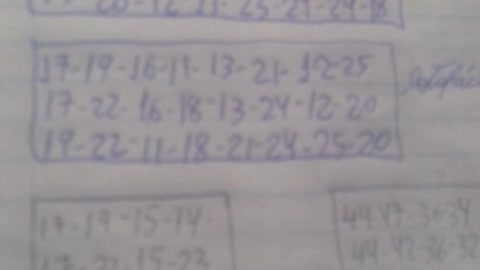 20-12-11-23-21-24-18
17-19-16-11-13-21-12-25
17-22-16-18-13-24-12-20
19-22-11-18-21-24-25-20
17-19-15-14
17-22-15-23
44-47-36-34
44-42-36-32